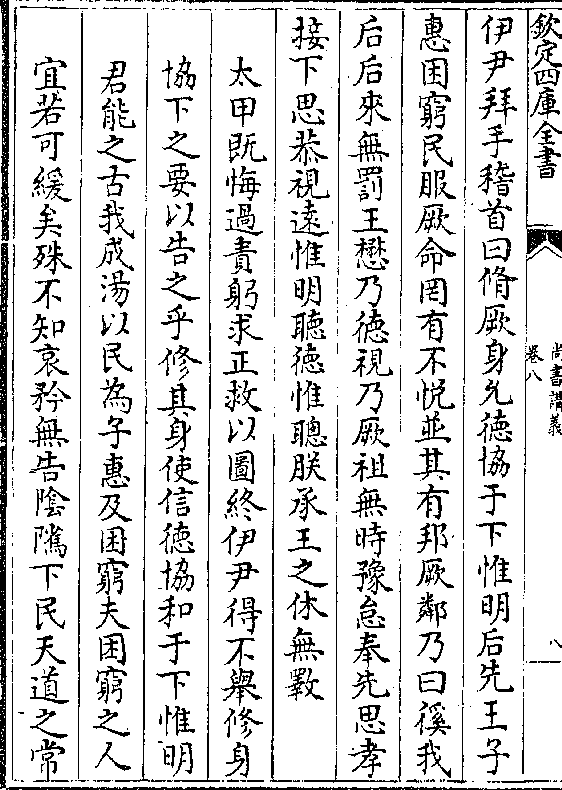 欽定四庫全書
尚書講義
卷八
八
伊尹拜手稽首曰脩厥身允徳協于下惟明后先王子
惠困窮民服厥命罔有不悦並其有邦厥鄰乃曰徯我
后后來無罰王懋乃徳視乃厥祖無時豫怠奉先思孝
接下思恭視逺惟明聽徳惟聰朕承王之休無斁
太甲既悔過責躬求正救以圖終伊尹得不舉修身
協下之要以告之乎修其身使信徳協和于下惟明
君能之古我成湯以民為子惠及困窮夫困窮之人
宜若可緩矣殊不知哀矜無告隂隲下民天道之常